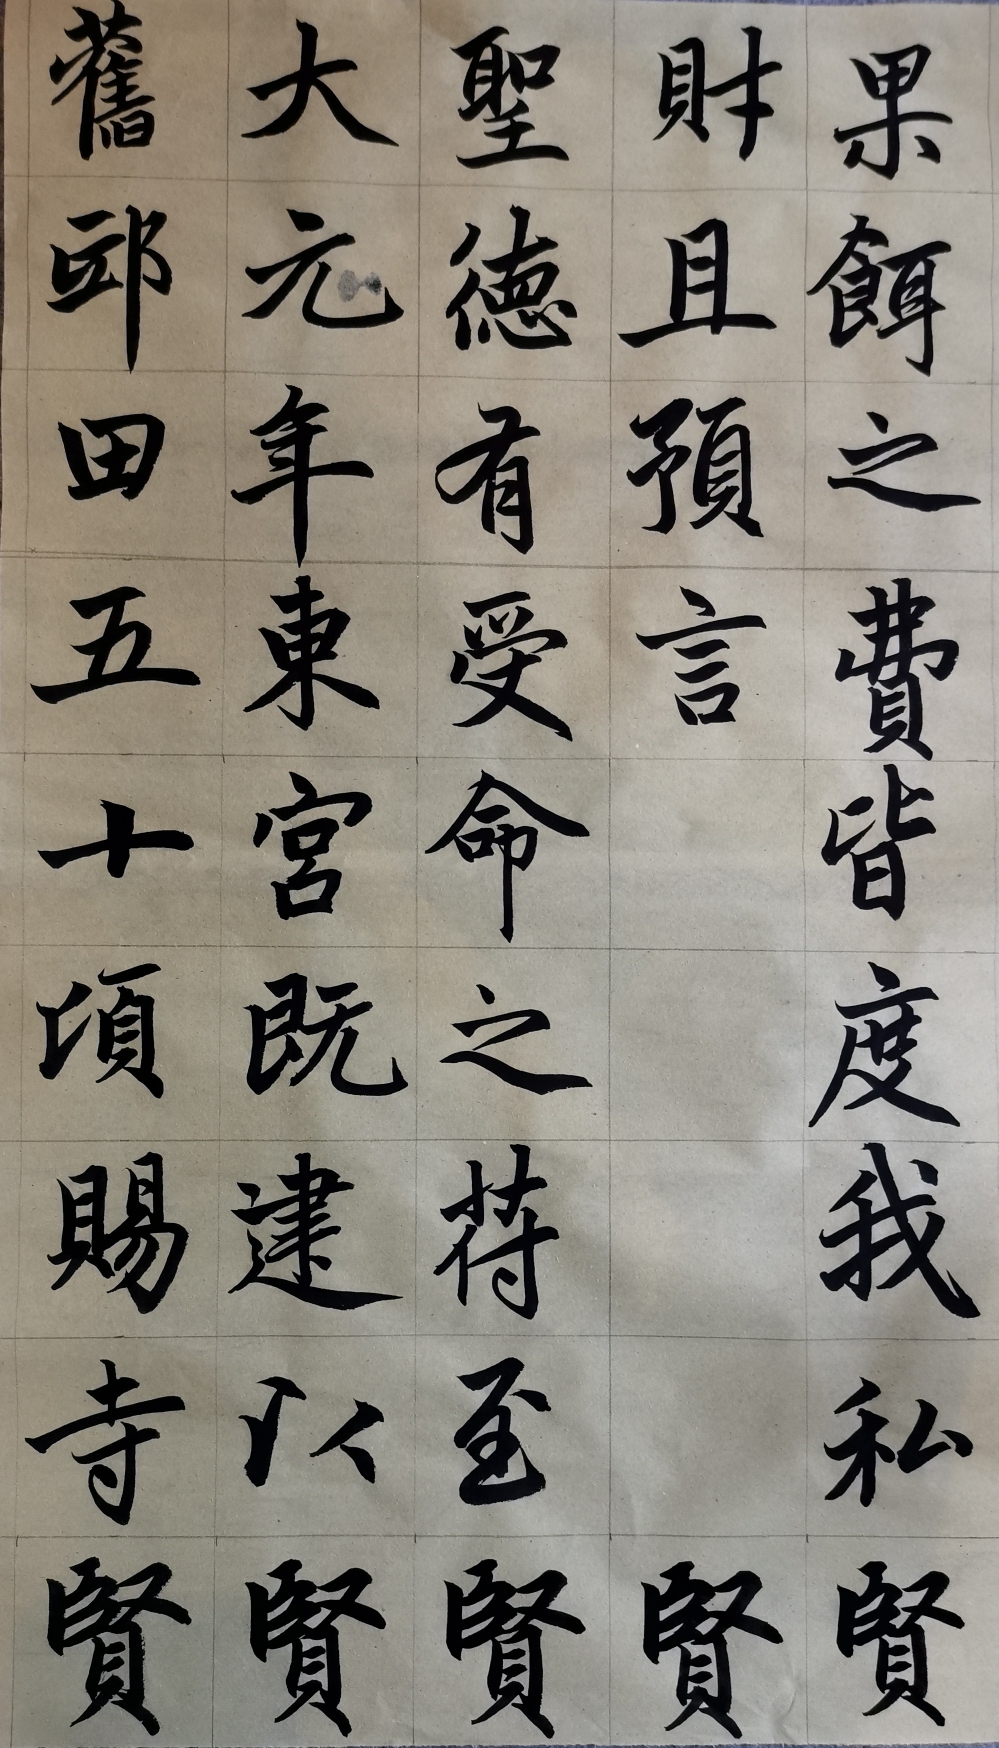 果餌之費皆度我私賢
財且預言賢
聖德有受命之苻至賢
大元年東宮既建以賢
舊邸田五十頃賜寺賢